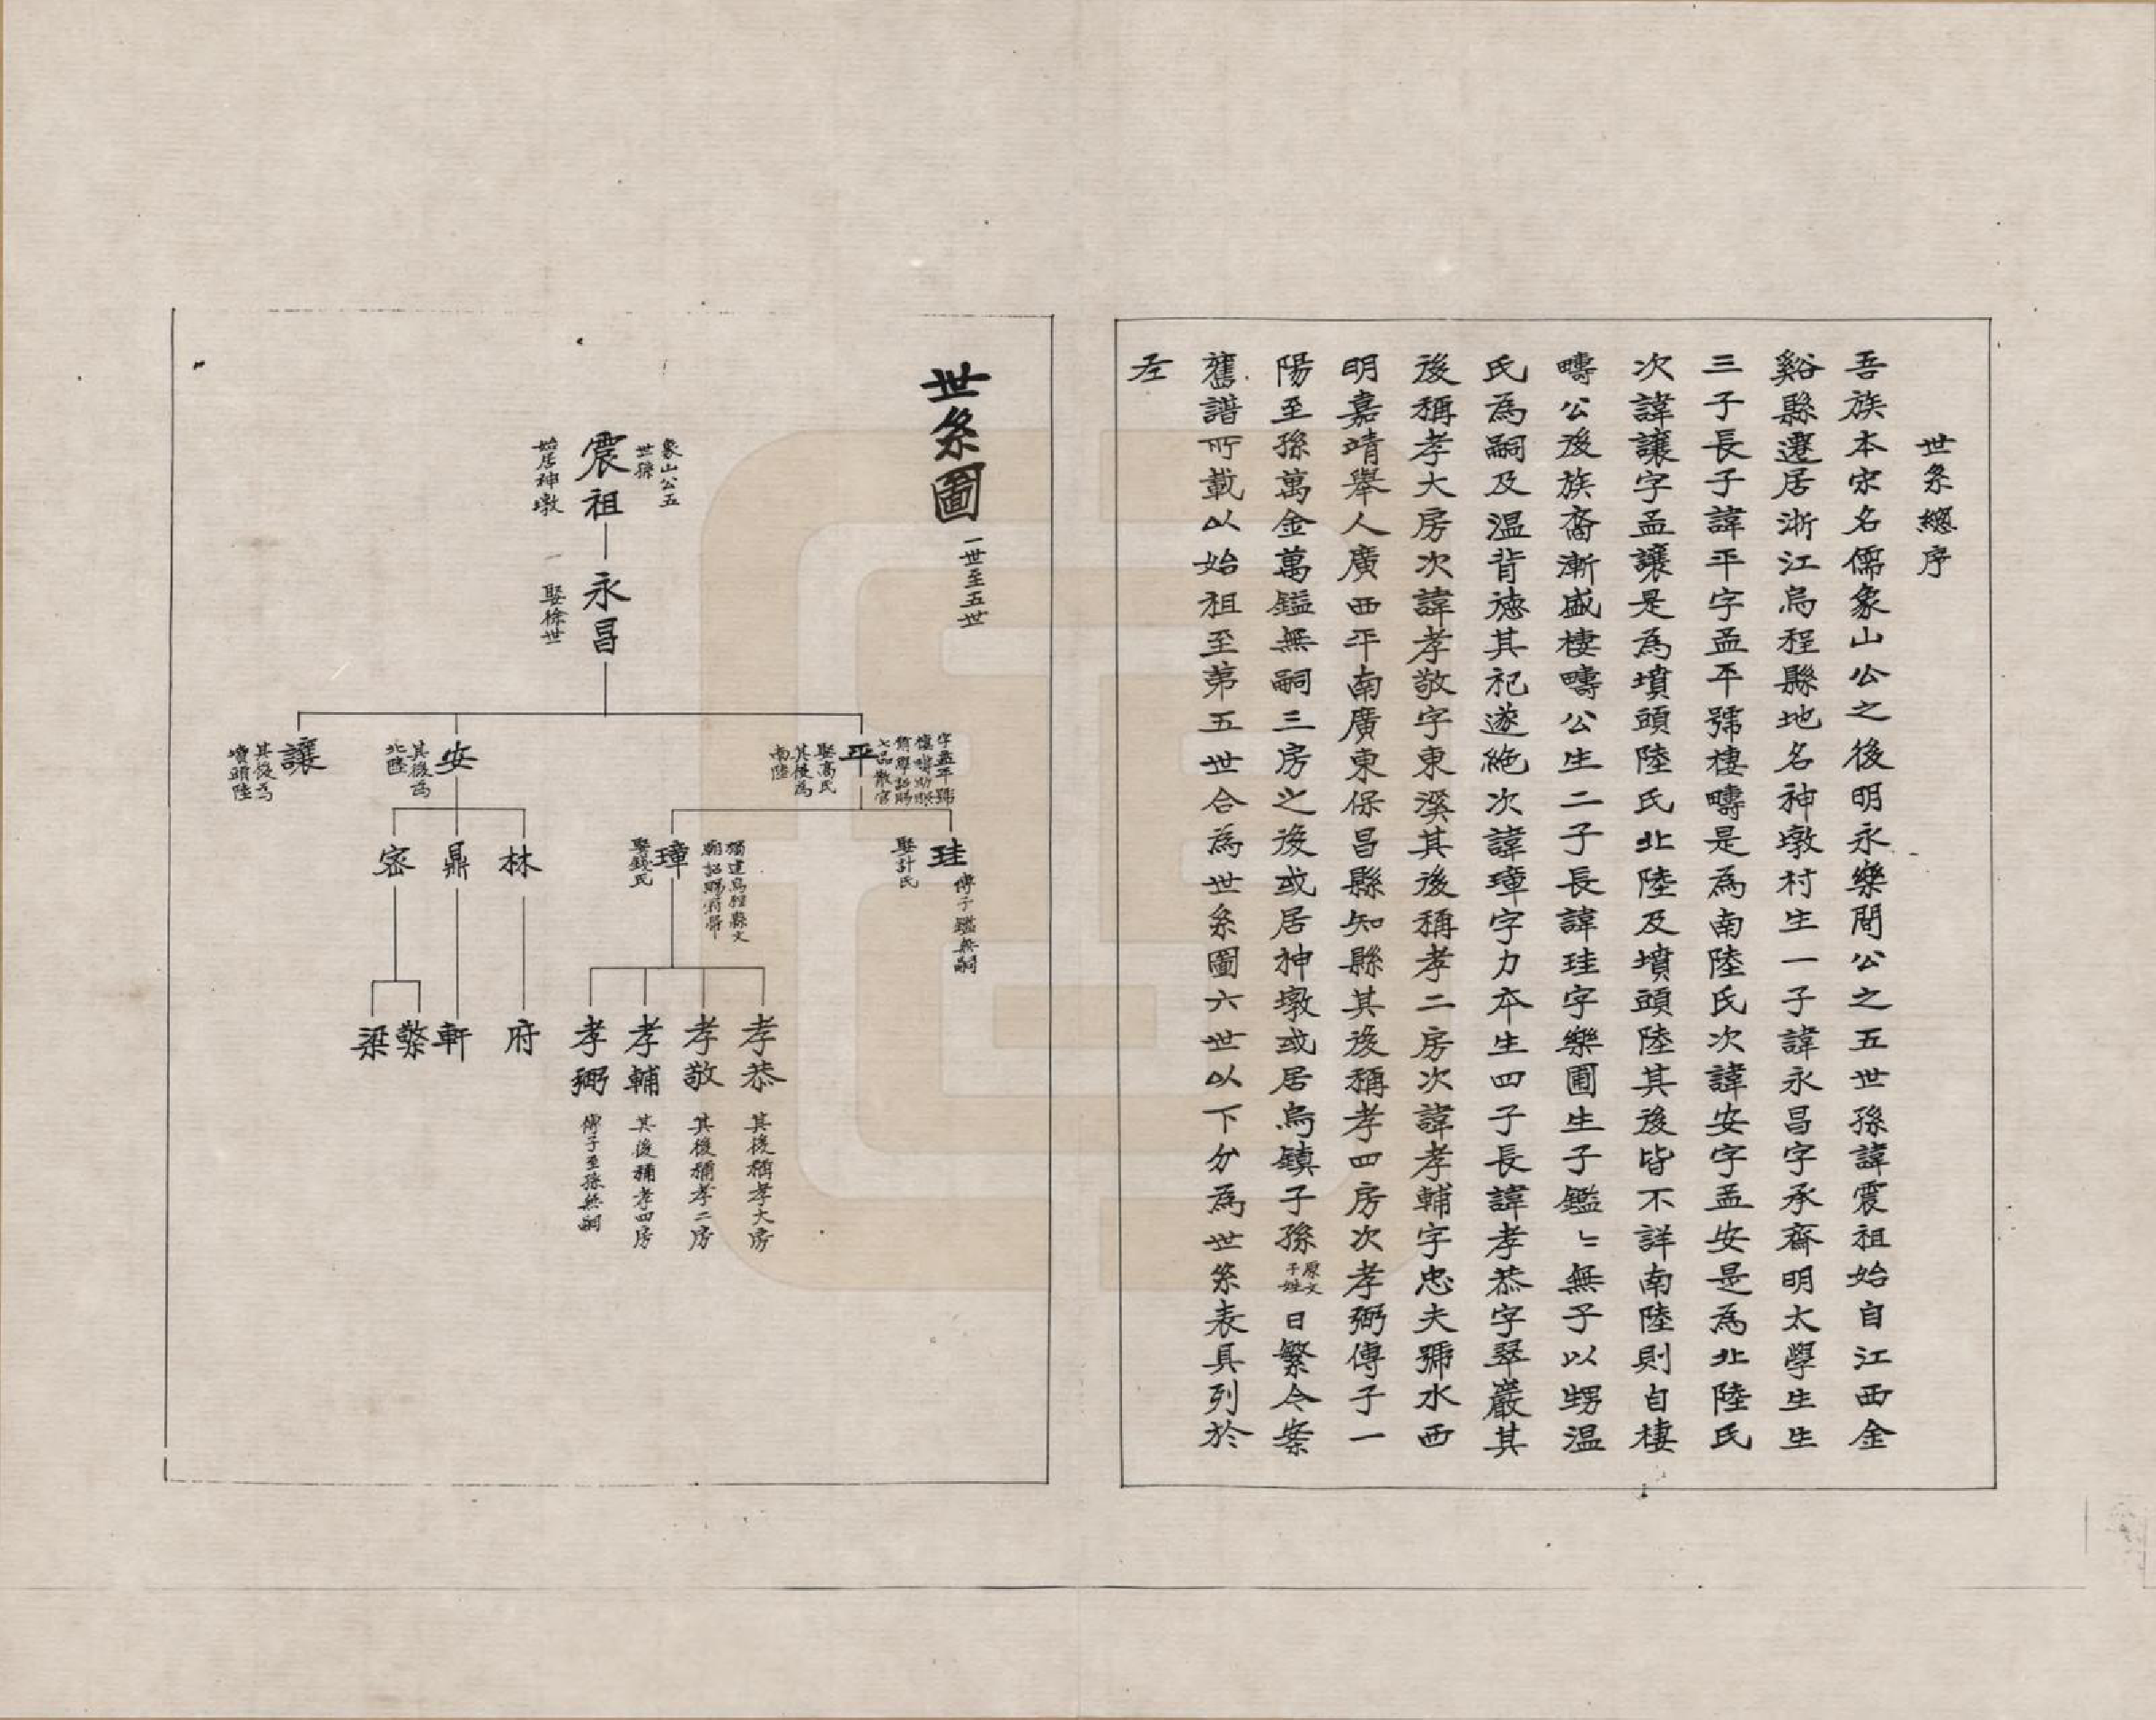 世系總序
吾族本宋名儒象山公之後明永樂間公之五世孫諱震祖始自江西金
谿縣遷居浙江烏程縣地名神墩村生一子諱永昌字承齋明太學生生
三子長子諱平字孟平號棲疇是為南陸氏次諱安字孟安是為北陸氏
次諱讓字孟讓是為墳頭陸氏北陸及墳頭陸其後皆不詳南陸則自棲
疇公後族裔漸盛棲疇公生二子長諱珪字樂圃生子鑑〻無子以甥温
氏為嗣及温背德其祀遂絶次諱璋字力夲生四子長諱孝恭字翠巖其
後稱孝大房次諱孝敬字東溪其後稱孝二房次諱孝輔字忠夫號水西
明嘉靖舉人廣西平南廣東保昌縣知縣其後稱孝四房次孝弼傳子一
陽至孫萬金萬鎰無嗣三房之後或居神墩或居烏鎮子孫原文子姓日繁今案
舊譜所載以始祖至第五世合為世系圖六世以下分為世系表具列於
左
世系圖
一世至五世
象山公五
世孫
震祖
始居神墩
永昌
娶徐世
字孟平號
棲疇助賑
七品散官
平
娶高氏
其後為
南陸
安
其後為
北陸
讓
其後為
墳頭陸
珪
傳子鑑無嗣
娶計氏
獨建烏程縣文
廟詔賜冠帶
璋
娶錢氏
林
鼎
密
孝恭
其後稱孝大房
孝敬
其後稱孝二房
孝輔
其後稱孝四房
孝弼
傳子至孫無嗣
府
軒
檠
梁